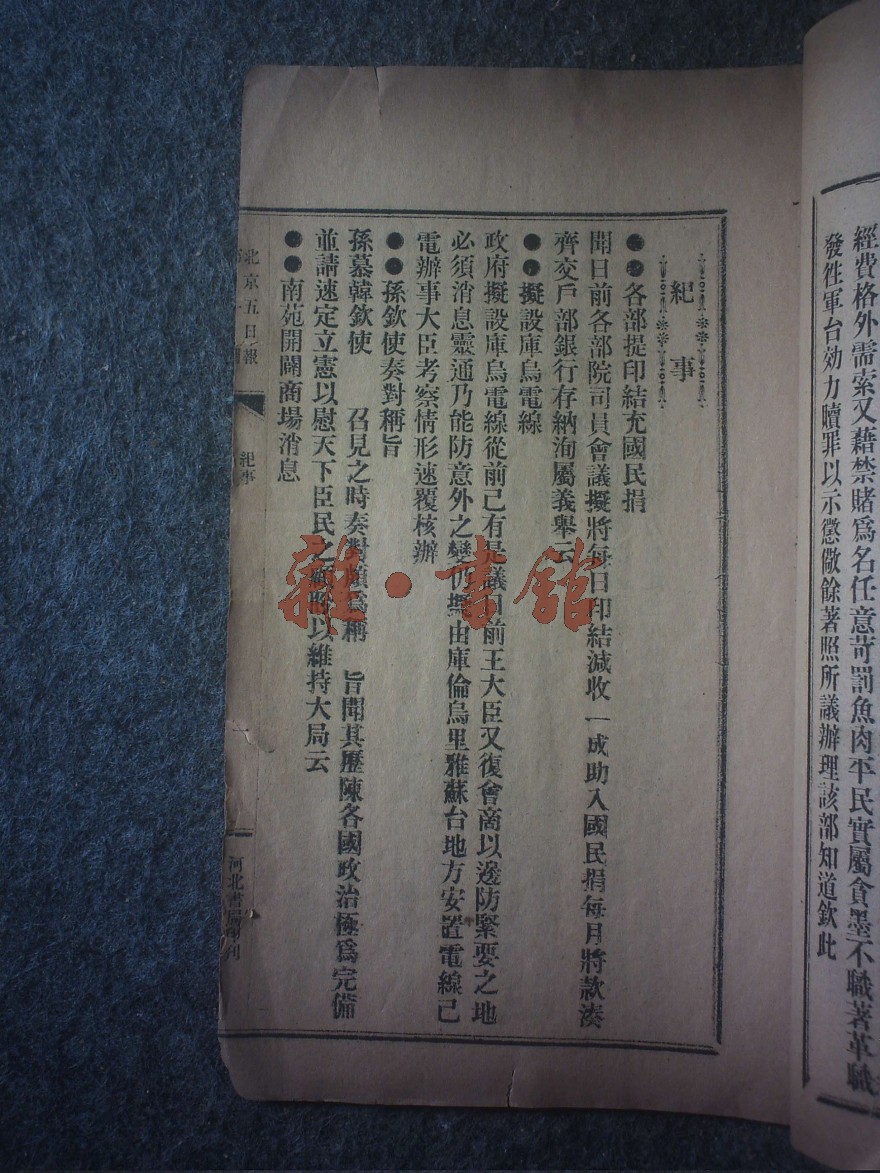 經費格外需索又藉禁賭爲名任意苛罰魚肉平民實屬貪墨不職著革職
發徃軍台効力贖罪以示懲儆餘著照所議辦理該部知道欽此
紀事
●●各部提印結充國民捐
聞日前各部院司員會議擬將每日印結減收一成助入國民捐每月將款湊
齊交戶部銀行存納洵屬義舉云
●●擬設庫烏電線
政府擬設庫烏電線從前已有是議日前王大臣又復會商以邊防緊要之地
必須消息靈通乃能防意外之變仍擬由庫倫烏里雅蘇台地方安置電線已
電辦事大臣考察情形速覆核辦
●●孫欽使奏對稱旨
孫慕韓欽使 召見之時奏對頗爲稱 旨聞其歷陳各國政治極爲完備
並請速定立憲以慰天下臣民之顒盼以維持大局云
●●南苑開闢商場消息
北京五日報
紀事
河北書局印刊
雜·書館